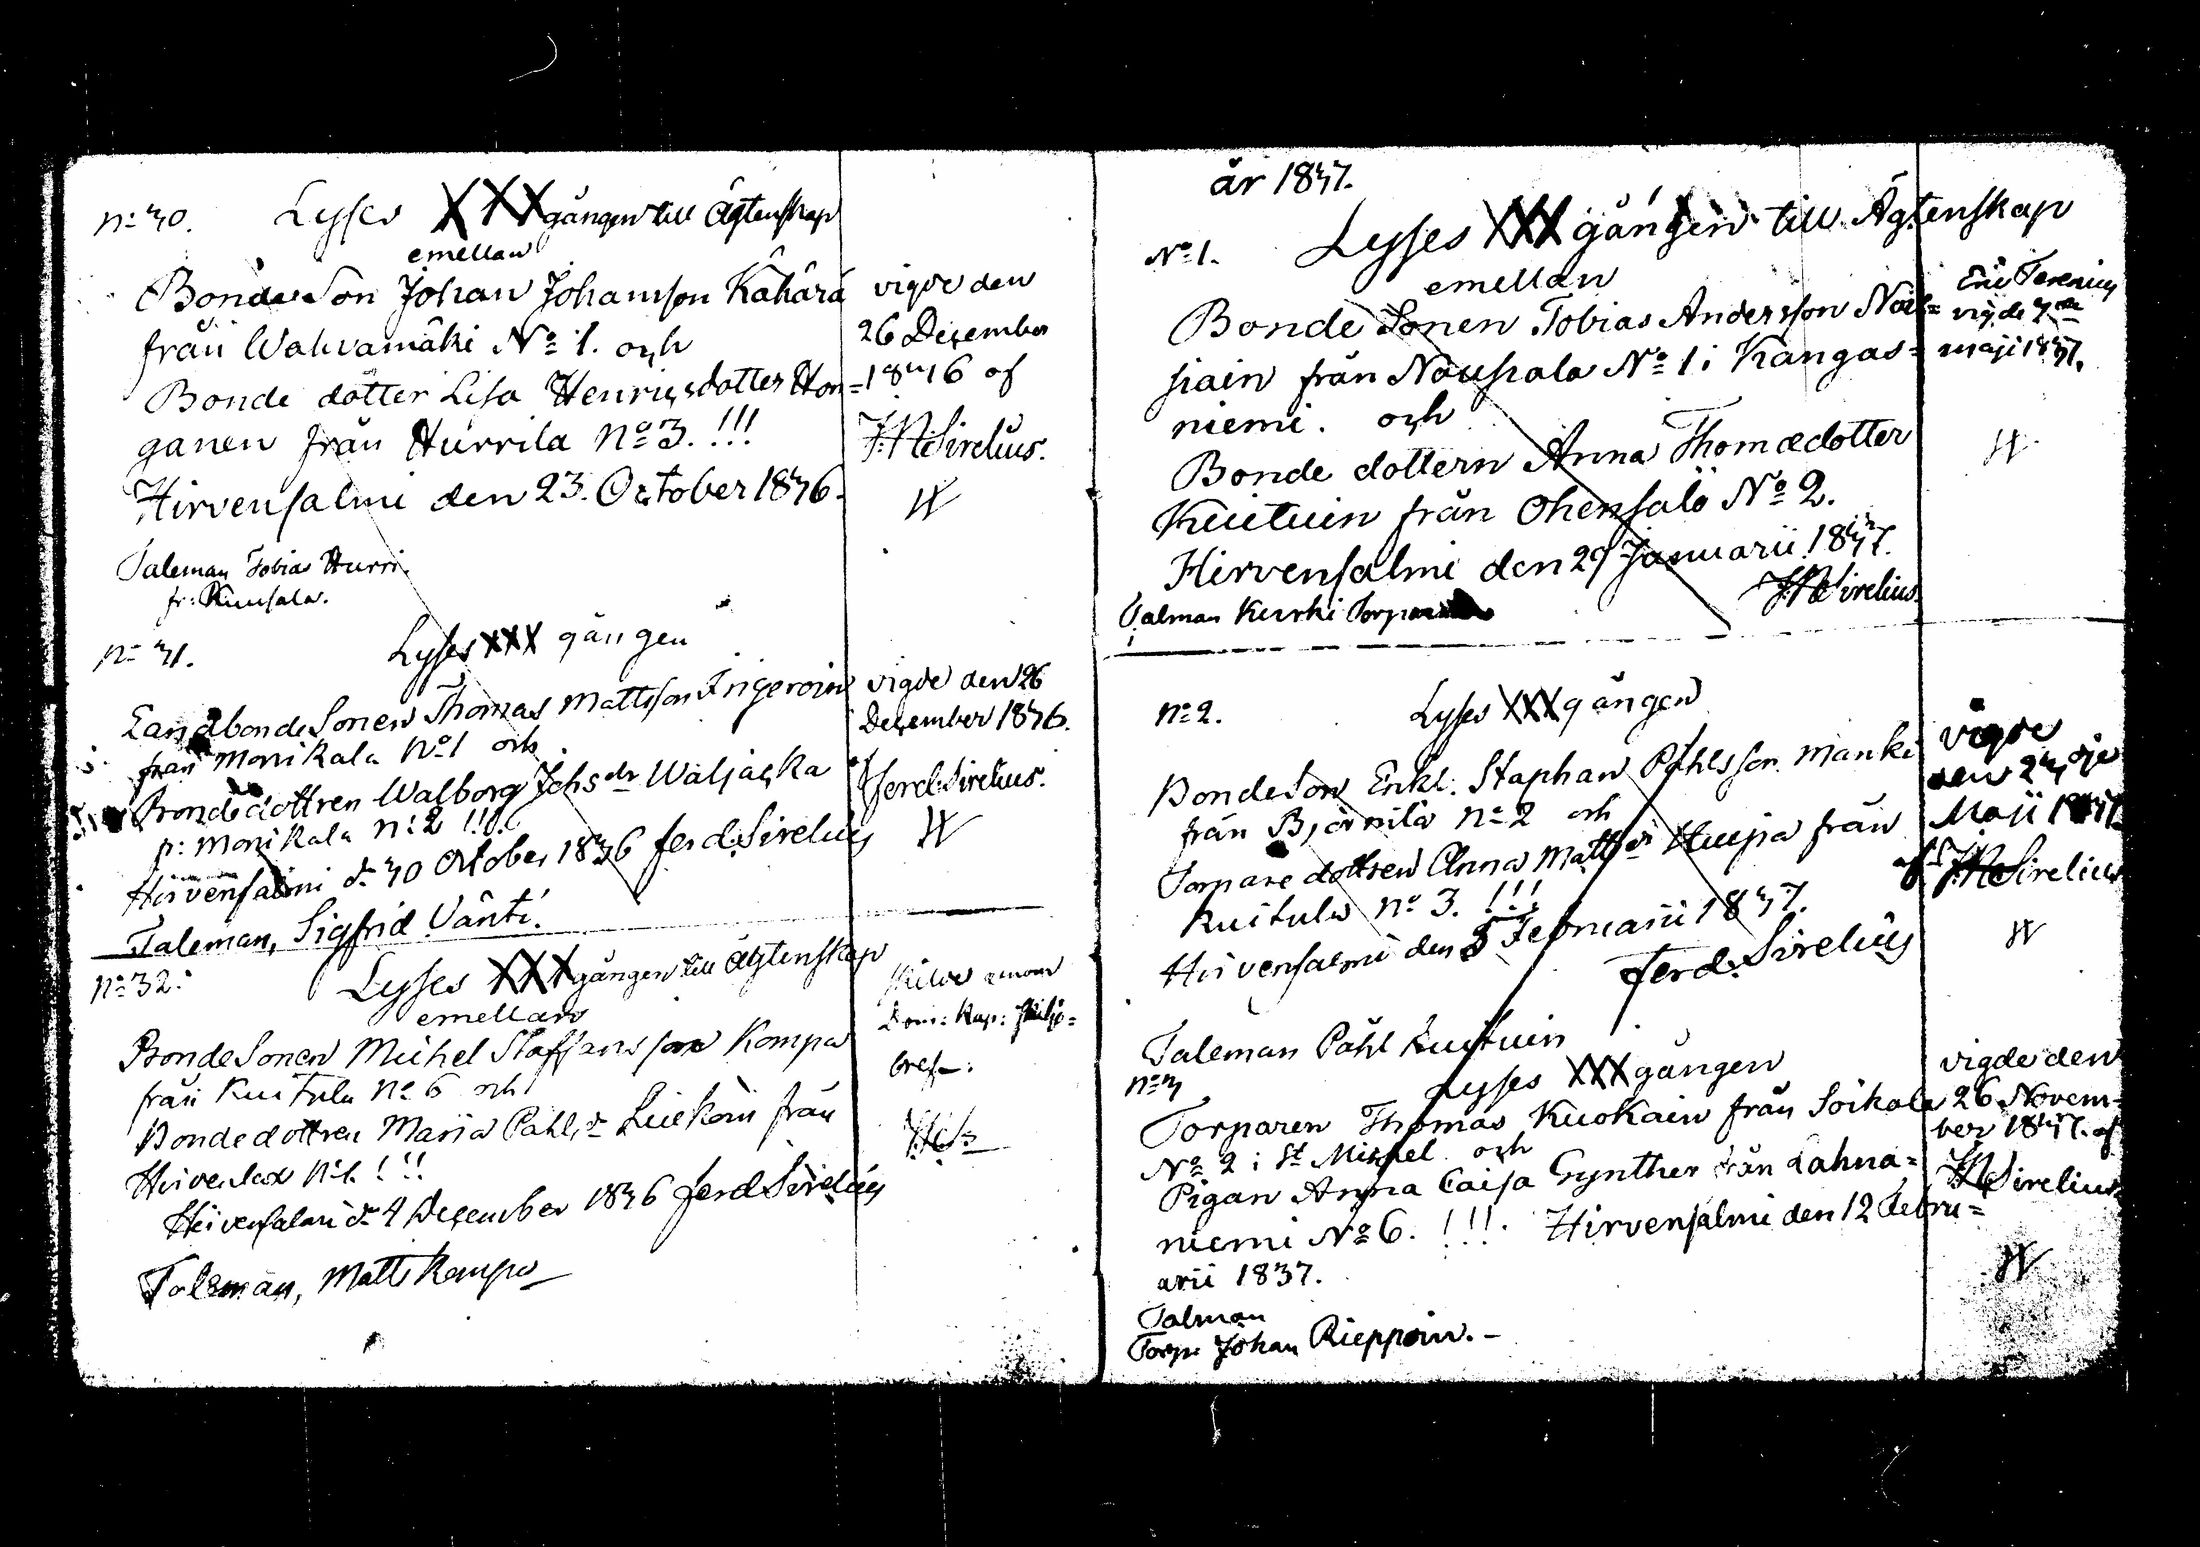 No 30. Lyses XXX gången till Ägtenskap
emellan
Bonde Son Johan Johansson Kähärä
från Wahvamäki No 1. och
Bonde dotter Lisa Henricsdotter Hon=
ganen från Hurrila No 3. !!!
Hirvensalmi den 23. October 1836.
Taleman Tobias Hurri
fr: Kuusala.
vigde den
26 December
1836 af
J.N. Sirelius.
No 31. Lyses XXX gången
Landbonde Sonen Thomas Mattsson Ingeroin
från Monikala No 1 och
Bonde dottren Walborg Johsdr Wäljacka
fr: Monikala No 2 !!!
Hirvensalmi d. 30 October 1836 Ferd. Sirelius
Taleman, Sigfrid Vänti.
vigde den 26
December 1836.
Ferd. Sirelius.
No 32. Lyses XXX gången till Ägtenskap
emellan
Bonde Sonen Michel Staffansson Kompa
från Kuitula No 6 och
Bonde dottren Maria Pahlsdr Liukoin från
Hirvenlax No 1. !!!
Hirvensalmi d. 4 December 1836 Ferd Sirelius
Taleman, Matts Kompa
Dom: Kap: skiljo=
bref.
år 1837.
No 1. Lyses XXX gången till Ägtenskap
emellan
Bonde Sonen Tobias Andersson Nou=
siain från Nousiala No 1 i Kangas=
niemi. och
Bonde dottern Anna Thomædotter
Kuituin från Ohensalo No 2.
Hirvensalmi den 29 Januarii 1837.
J.N. Sirelius.
Talman Kurki
vigde 7de
Maji 1837.
No 2. Lyses XXX gången
Bonde Son Enkl: Staphan Påhlsson Manki
från Björnilä No 2 och
Torpare dottren Anna Mattsdr Huupa från
Kuitula No 3. !!!
Hirvensalmi den 5 Februarii 1837.
Ferd. Sirelius
Taleman Påhl Kuituin
vigde
den 23dje
Maji 1837
af J.N. Sirelius
No 3 Lyses XXX gången
Torparen Thomas Kuokain från Soikala
No 2 i St Michel och
Pigan Anna Caisa Gynther från Lahna=
niemi No 6. !!!. Hirvensalmi den 12 Febru=
arii 1837.
Talman
Torp. Johan Rieppoin.
vigde den
26 Novem-
ber 1837. af
J.N. Sirelius